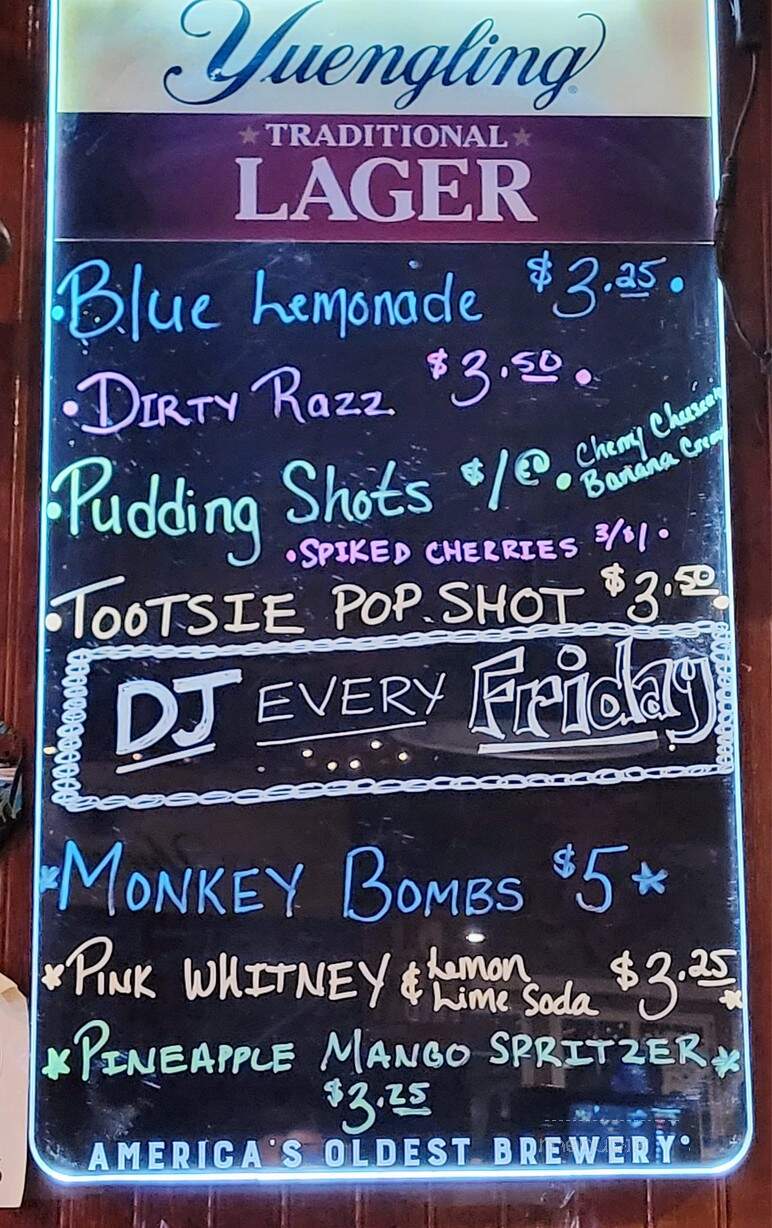 Yuengling®
TRADITIONAL
LAGER
Blue Lemonade $3.25
DIRTY Razz $3.50
Pudding Shots $1 Cherry
Banana
SPIKED CHERRIES 3/$1
TOOTSIE POP SHOT $3.50
DJ EVERY Friday
MONKEY BOMBS $5
PINK WHITNEY & Lemon
Lime Soda $3.25
PINEAPPLE MANGO SPRITZER
$3.25
AMERICA'S OLDEST BREWERY®